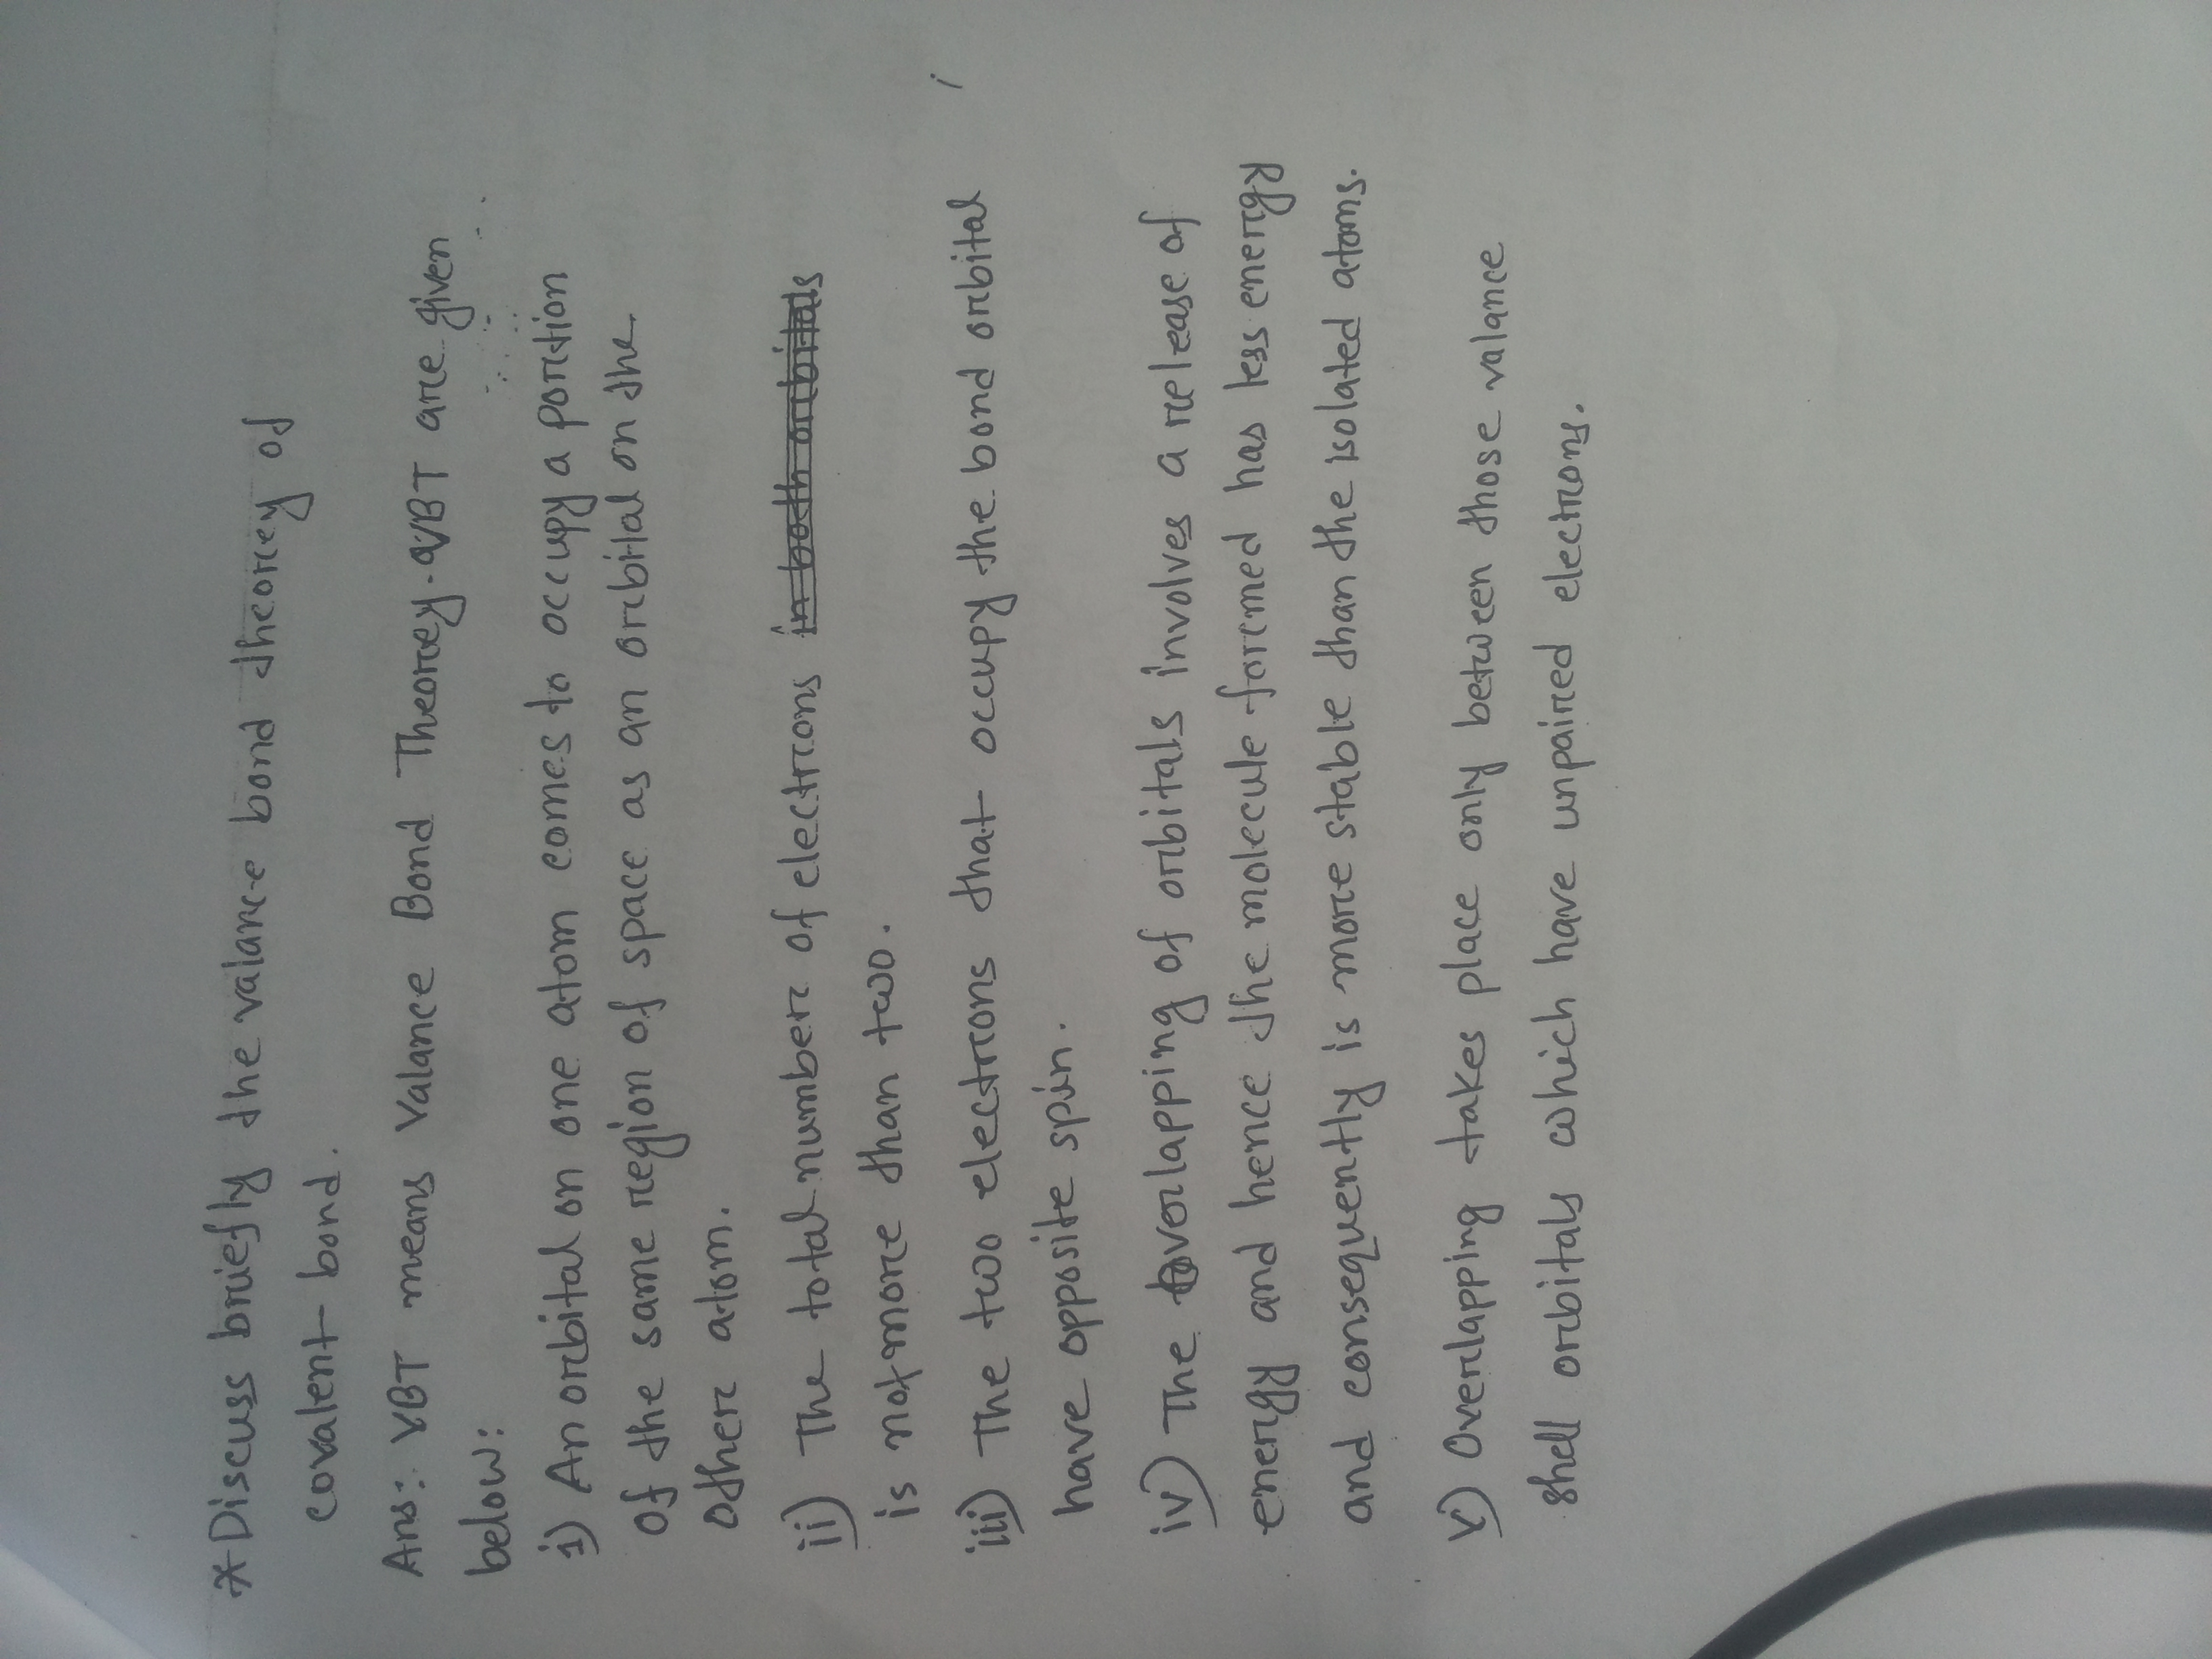 * Discuss briefly the valance bond theorey of
covalent bond.
Ans: VBT means Valance Bond Theorey. VBT are given
below:
i) An orbital on one atom comes to occupy a portion
of the same region of space as an orbital on the
other atom.
ii) The total number of electrons in both orbitals
is not more than two.
iii) The two electrons that occupy the bond orbital
have opposite spin.
iv) The overlapping of orbitals involves a release of
energy and hence the molecule formed has less energy
and consequently is more stable than the isolated atoms.
v) Overlapping takes place only between those valance
shell orbitals which have unpaired electrons.